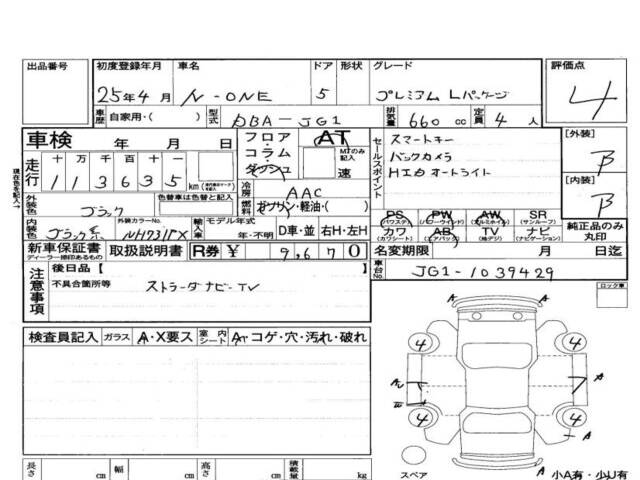 出品番号 初度登録年月 車名 ドア 形状 グレード 評価点
25年4月 N-ONE 5 プレミアム Lパッケージ 4
車歴 自家用・( ) 型式 DBA-JG1 排気量 660 cc 定員 4 人
車検 年 月 日 フロア・コラム・ダッシュ AT MTのみ記入 速
走行 十 万 千 百 十
113635 km
現在色を記入→
外装色 ブラック 色替車は色替と記入
冷房 AAC
燃料 ガソリン・軽油・( )
内装色 ブラック系 外装カラーNo. NH731PX 輸入車 モデル年式 年・不明 D車・並 右H・左H
セールスポイント
スマートキー
バックカメラ
HID オートライト
PS (パワステ) PW (パワーウインド) AW (アルミホイル) SR (サンルーフ)
カワ (カワシート) AB (エアバック) TV (純デジ) ナビ (ナビゲーション)
純正品のみ丸印
[外装] B
[内装] B
新車保証書 ディーラー捺印あるもの 取扱説明書 R券 ¥ 9,670
名変期限 月 日迄
車台No. JG1-1039429
注意事項
後日品【
不具合箇所等 ストラーダナビ-TV
検査員記入 ガラス A・X要ス 室内シート A・コゲ・穴・汚れ・破れ
ロック車
A
4 4
A
A
4 4
A A
スペア 小A有・少U有
長さ cm 幅 cm 高さ cm 積載量 kg